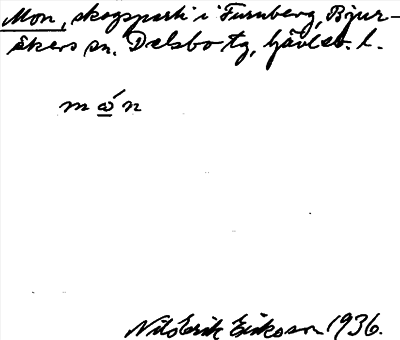 Mon, skogsparti i Furnberg, Bjur-
åkers sn. Delsbo tg, Gävleb. l.
mo̲´n
Nils Erik Eriksson 1936.